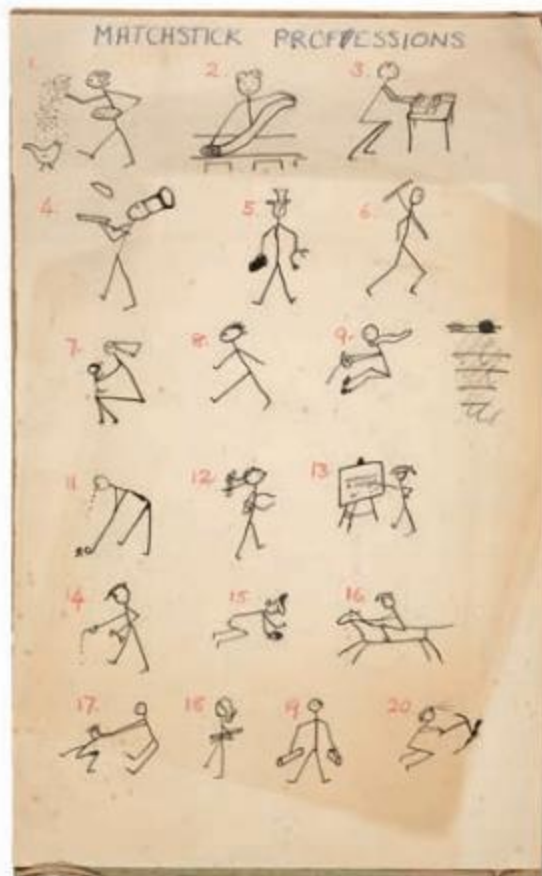 MATCHSTICK PROFESSIONS
1. 2. 3.
4. 5. 6.
7. 8. 9.
11. 12. 13.
14 15. 16.
17. 18 19. 20.